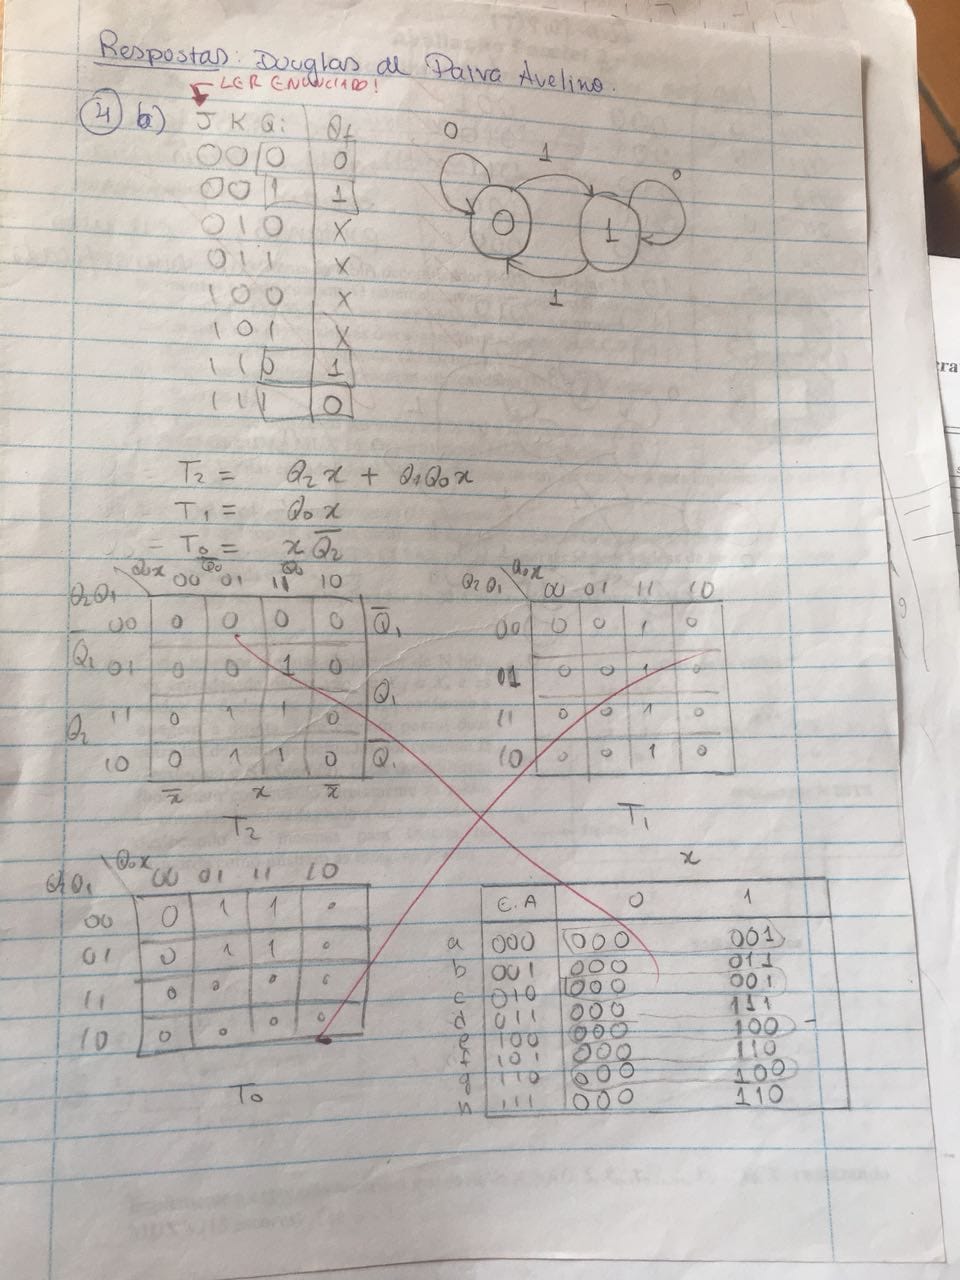 Respostas: Douglas de Paiva Avelino.
LER ENUNCIADO!
4 b) J K Qi Qf
0 0 0 0
0 0 1 1
0 1 0 X
0 1 1 X
1 0 0 X
1 0 1 X
1 1 0 1
1 1 1 0
0 1 0
0 1
1
T2 = Q2x + Q1Q0x
T1 = Q0x
= T0 = x Q̅2
Q0x Q̅0 Q0
Q2Q1 00 01 11 10
00 0 0 0 0 Q̅1
01 0 0 1 0 Q1
Q2 11 0 1 1 0
10 0 1 1 0 Q̅1
x̅ x x̅
T2
Q0x
Q2Q1 00 01 11 10
00 0 0 1 0
01 0 0 1 0
11 0 0 1 0
10 0 0 1 0
T1
Q0x
Q2Q1 00 01 11 10
00 0 1 1 0
01 0 1 1 0
11 0 0 0 0
10 0 0 0 0
T0
x
E.A 0 1
a 000 000 001
b 001 000 011
c 010 000 001
d 011 000 111
e 100 000 100
f 101 000 110
g 110 000 100
h 111 000 110